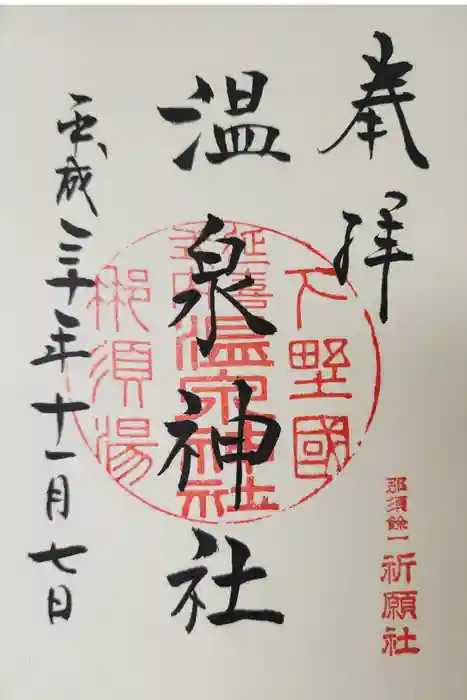 奉拝
下野國
延喜式内
温泉神社
那須湯
温泉神社
那須餘一
祈願社
平成三十年十一月七日